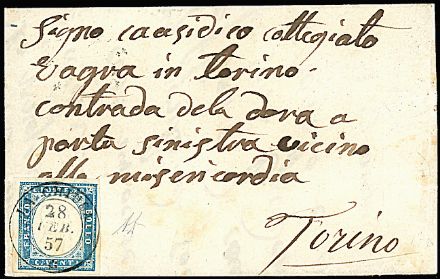 Signo causidico collegiato
vagra in torino
contrada dela dora a
porta sinistra vicino
alla misericordia
Torino
FRANCO BOLLO
28
FEB.
57